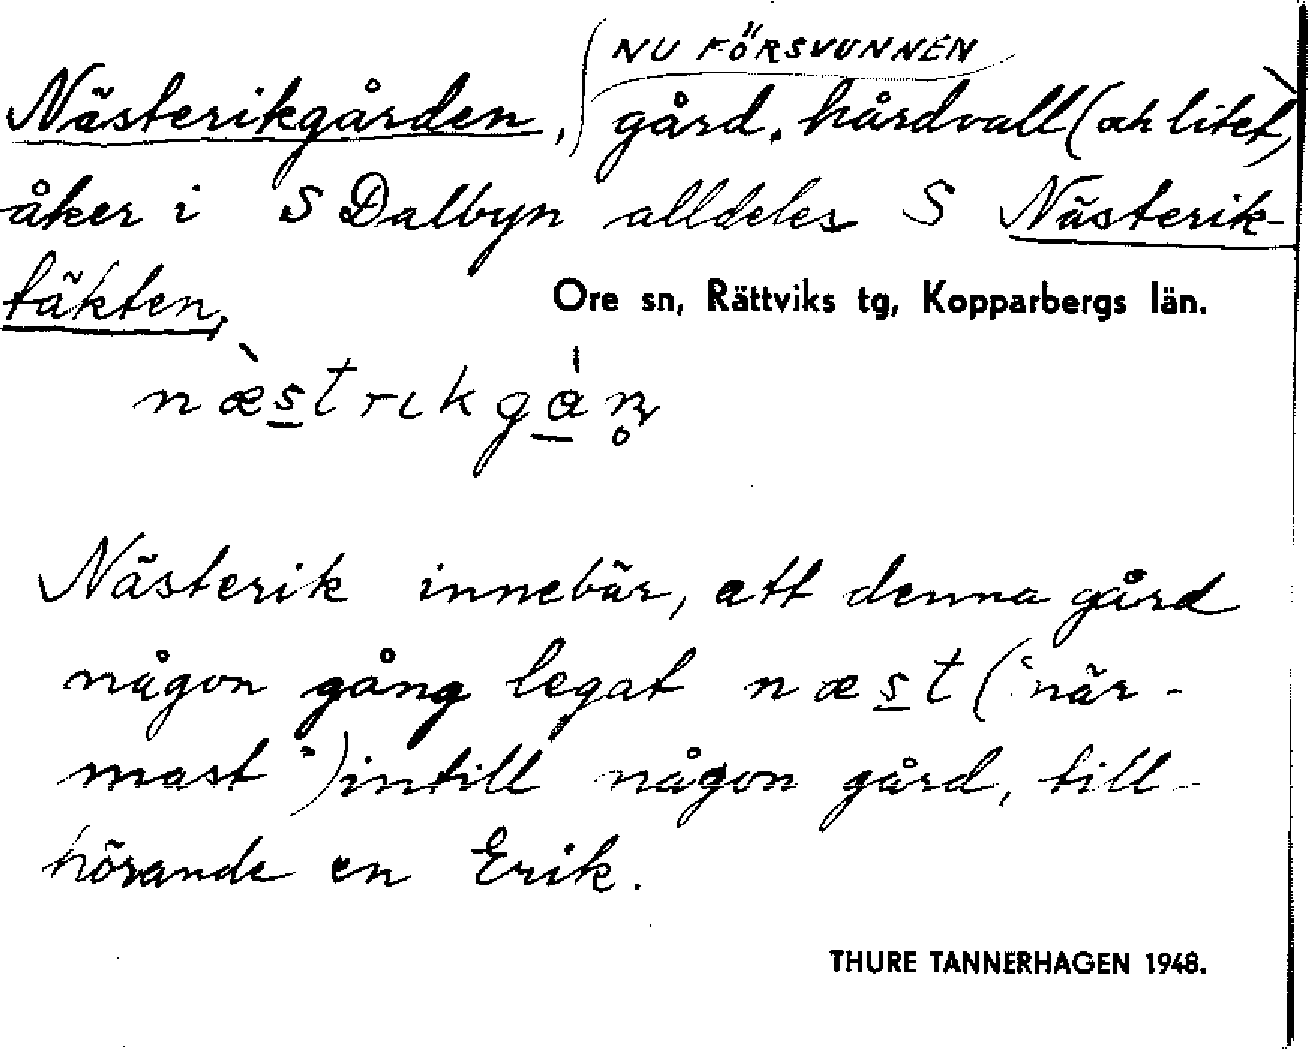 NU FÖRSVUNNEN
Nästerikgården, gård, hårdvall (och litet)
åker i S Dalbyn alldeles S Nästerik-
täkten.
Ore sn, Rättviks tg, Kopparbergs län.
næ̀strıkgàn̥
Nästerik innebär, att denna gård
någon gång legat næst ("när-
mast") intill någon gård, till-
hörande en Erik.
THURE TANNERHAGEN 1948.